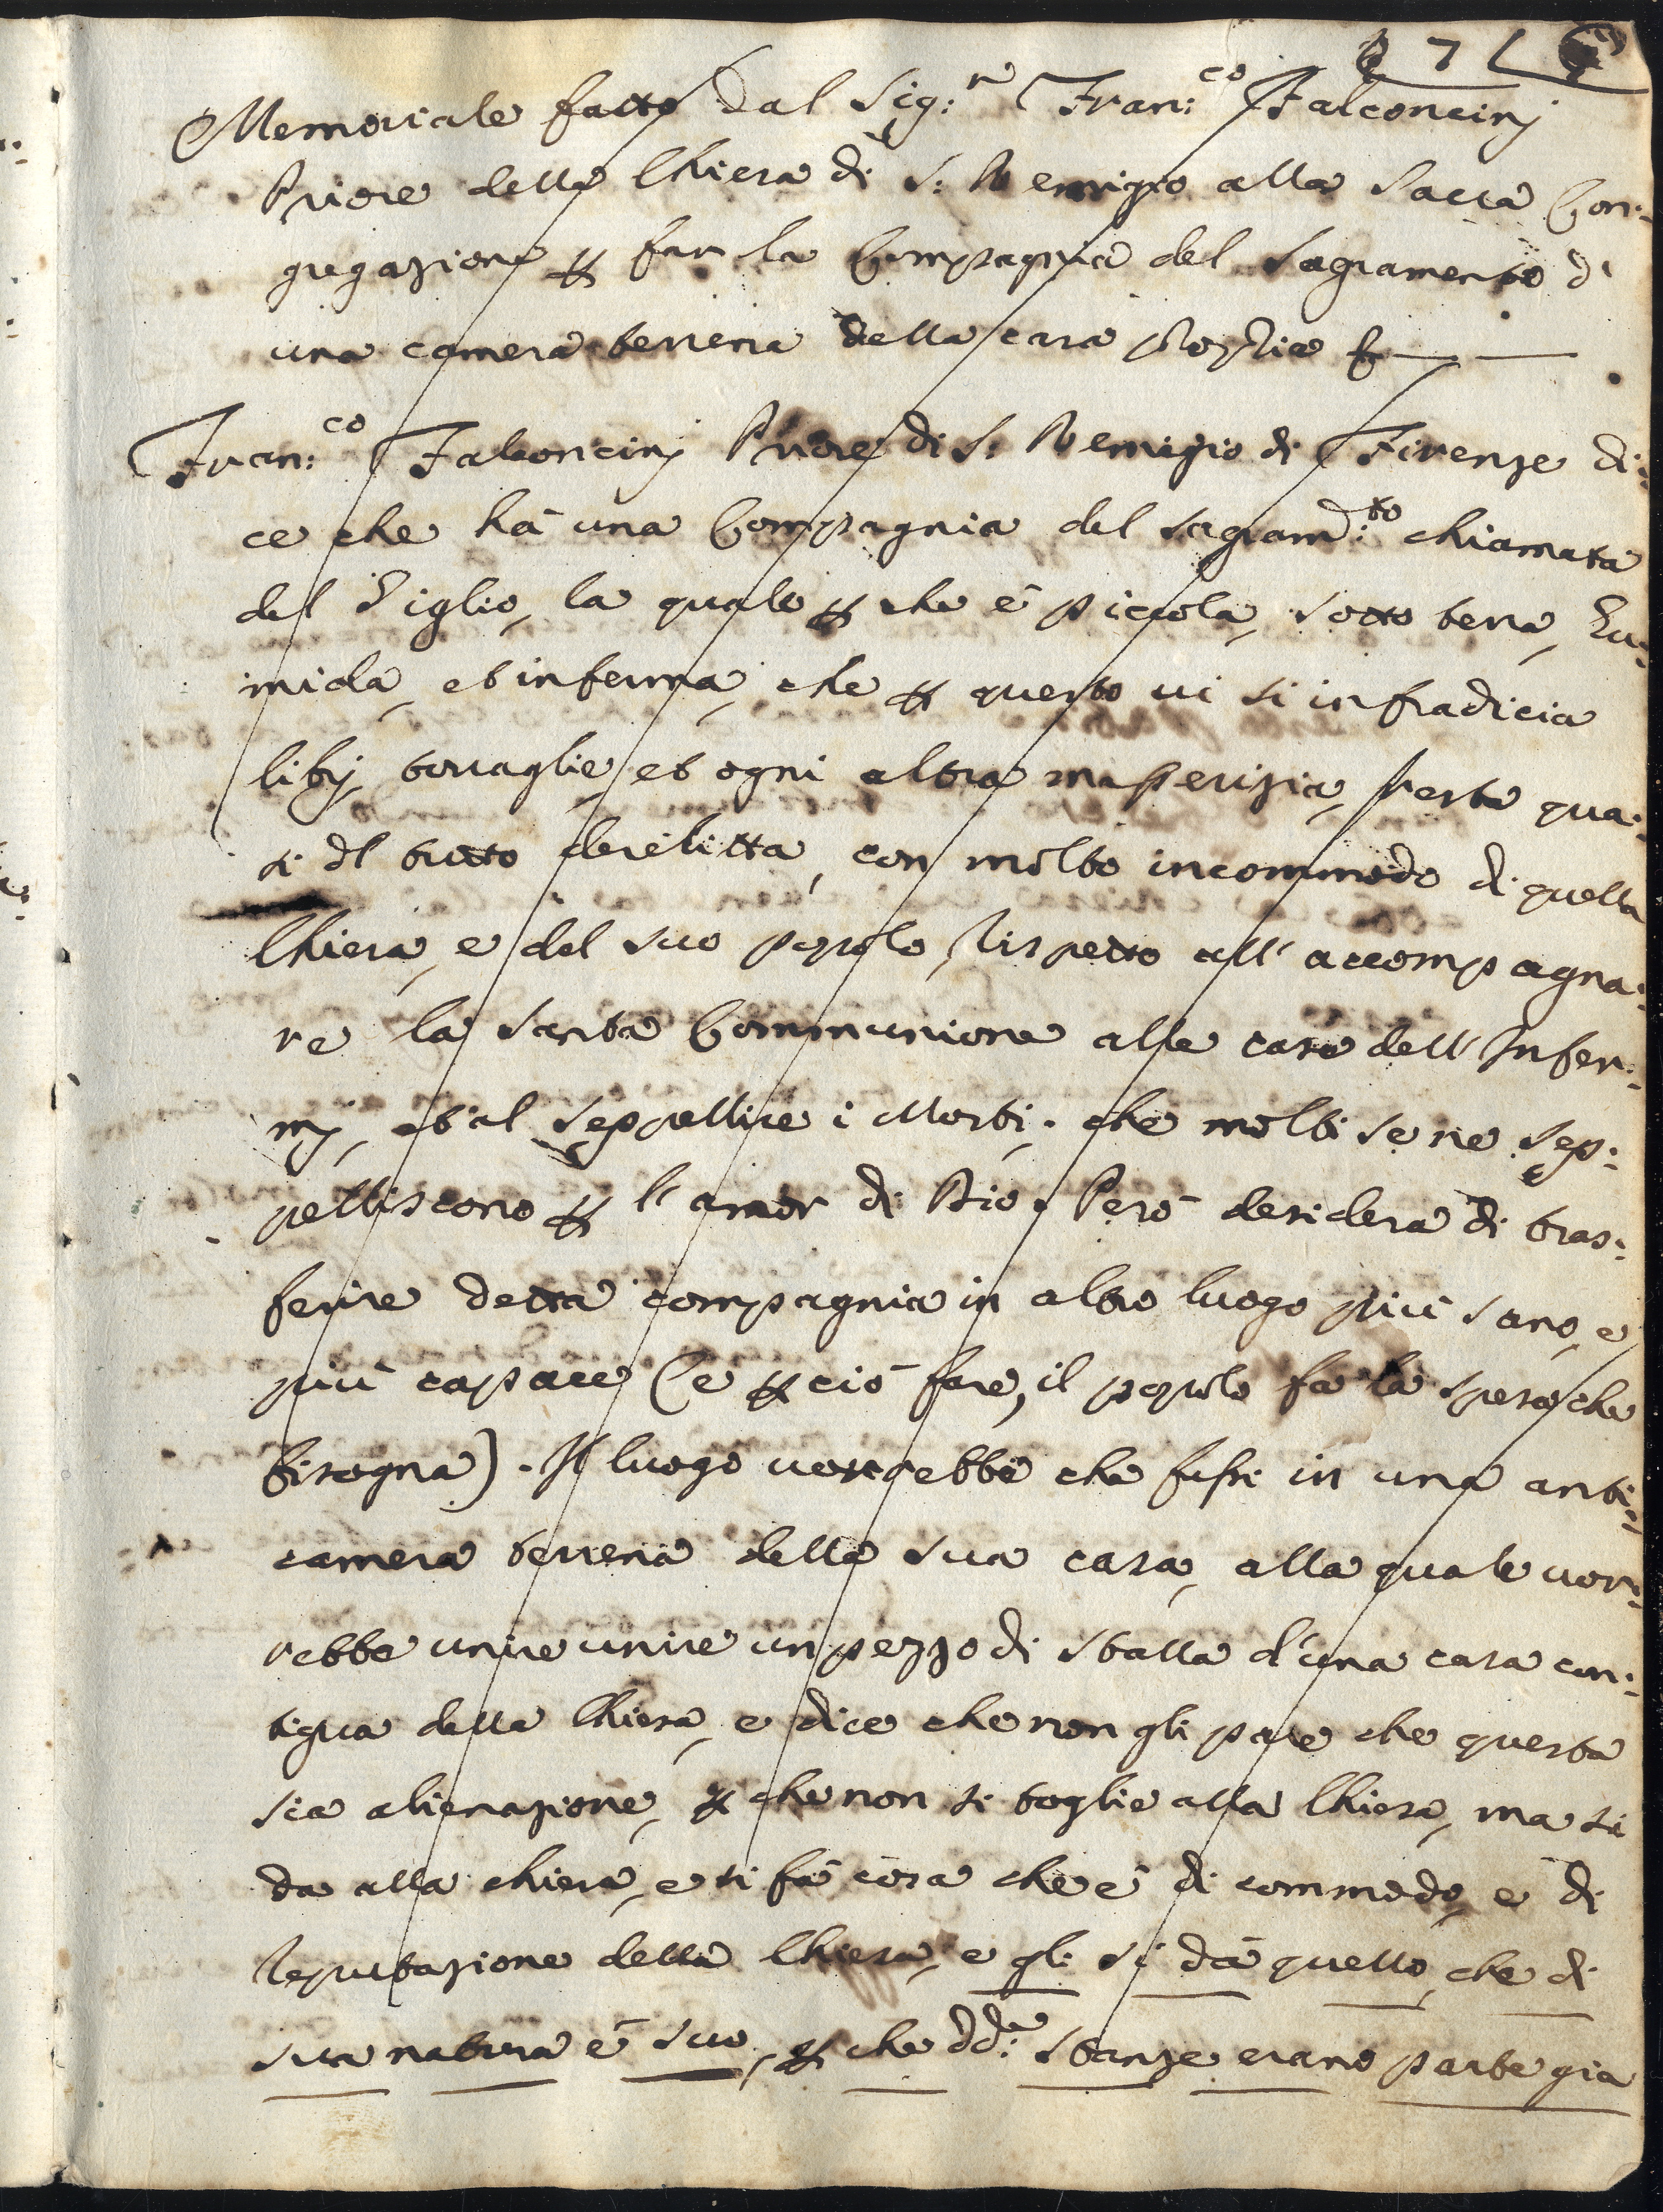 7
Memoriale fatto dal Sig:r Fran:co Falconcinj
Priore della Chiesa di S: Remigio alla Sacra Con:
gregazione p far la Compagnia del Sagramento di
una camera terrena della casa
Fran:co Falconcinj Priore di S: Remigio di Firenze di:
ce che há una Compagnia del Sagram:to chiamata
del Giglio, la quale p che é piccola, sotto terra, Hu:
mida, et inferma, che p questo vi si infradicia
librj, tovaglie, et ogni altra masserizia, resta qua:
si dl tutto derelitta, con molto incommodo di quella
Chiesa, e del suo popolo, rispetto all' accompagna:
re la santa Communione alle case dell' Infer:
mj, et al seppellire i Morti, che molti se ne sep:
pelliscono p l' amor di Dio. Peró desidera di tras:
ferire detta compagnia in altro luogo piú sano, e
piú capace (e p ció fare, il popolo fa la spesa che
bisogna). Il luogo vorrebbe che fussi in una anti:
camera terrena della sua casa, alla quale vor:
rebbe unire unire un pezzo di stalla d'una casa con:
tigua della Chiesa, e dice che non gli pare che questa
sia alienazione, p che non si toglie alla Chiesa, ma si
da alla chiesa, e si fá cosa che é di commodo, e di
reputazione della Chiesa, e gli si dá quello, che di
sua natura é suo, p che dd:e stanze erano parte gia